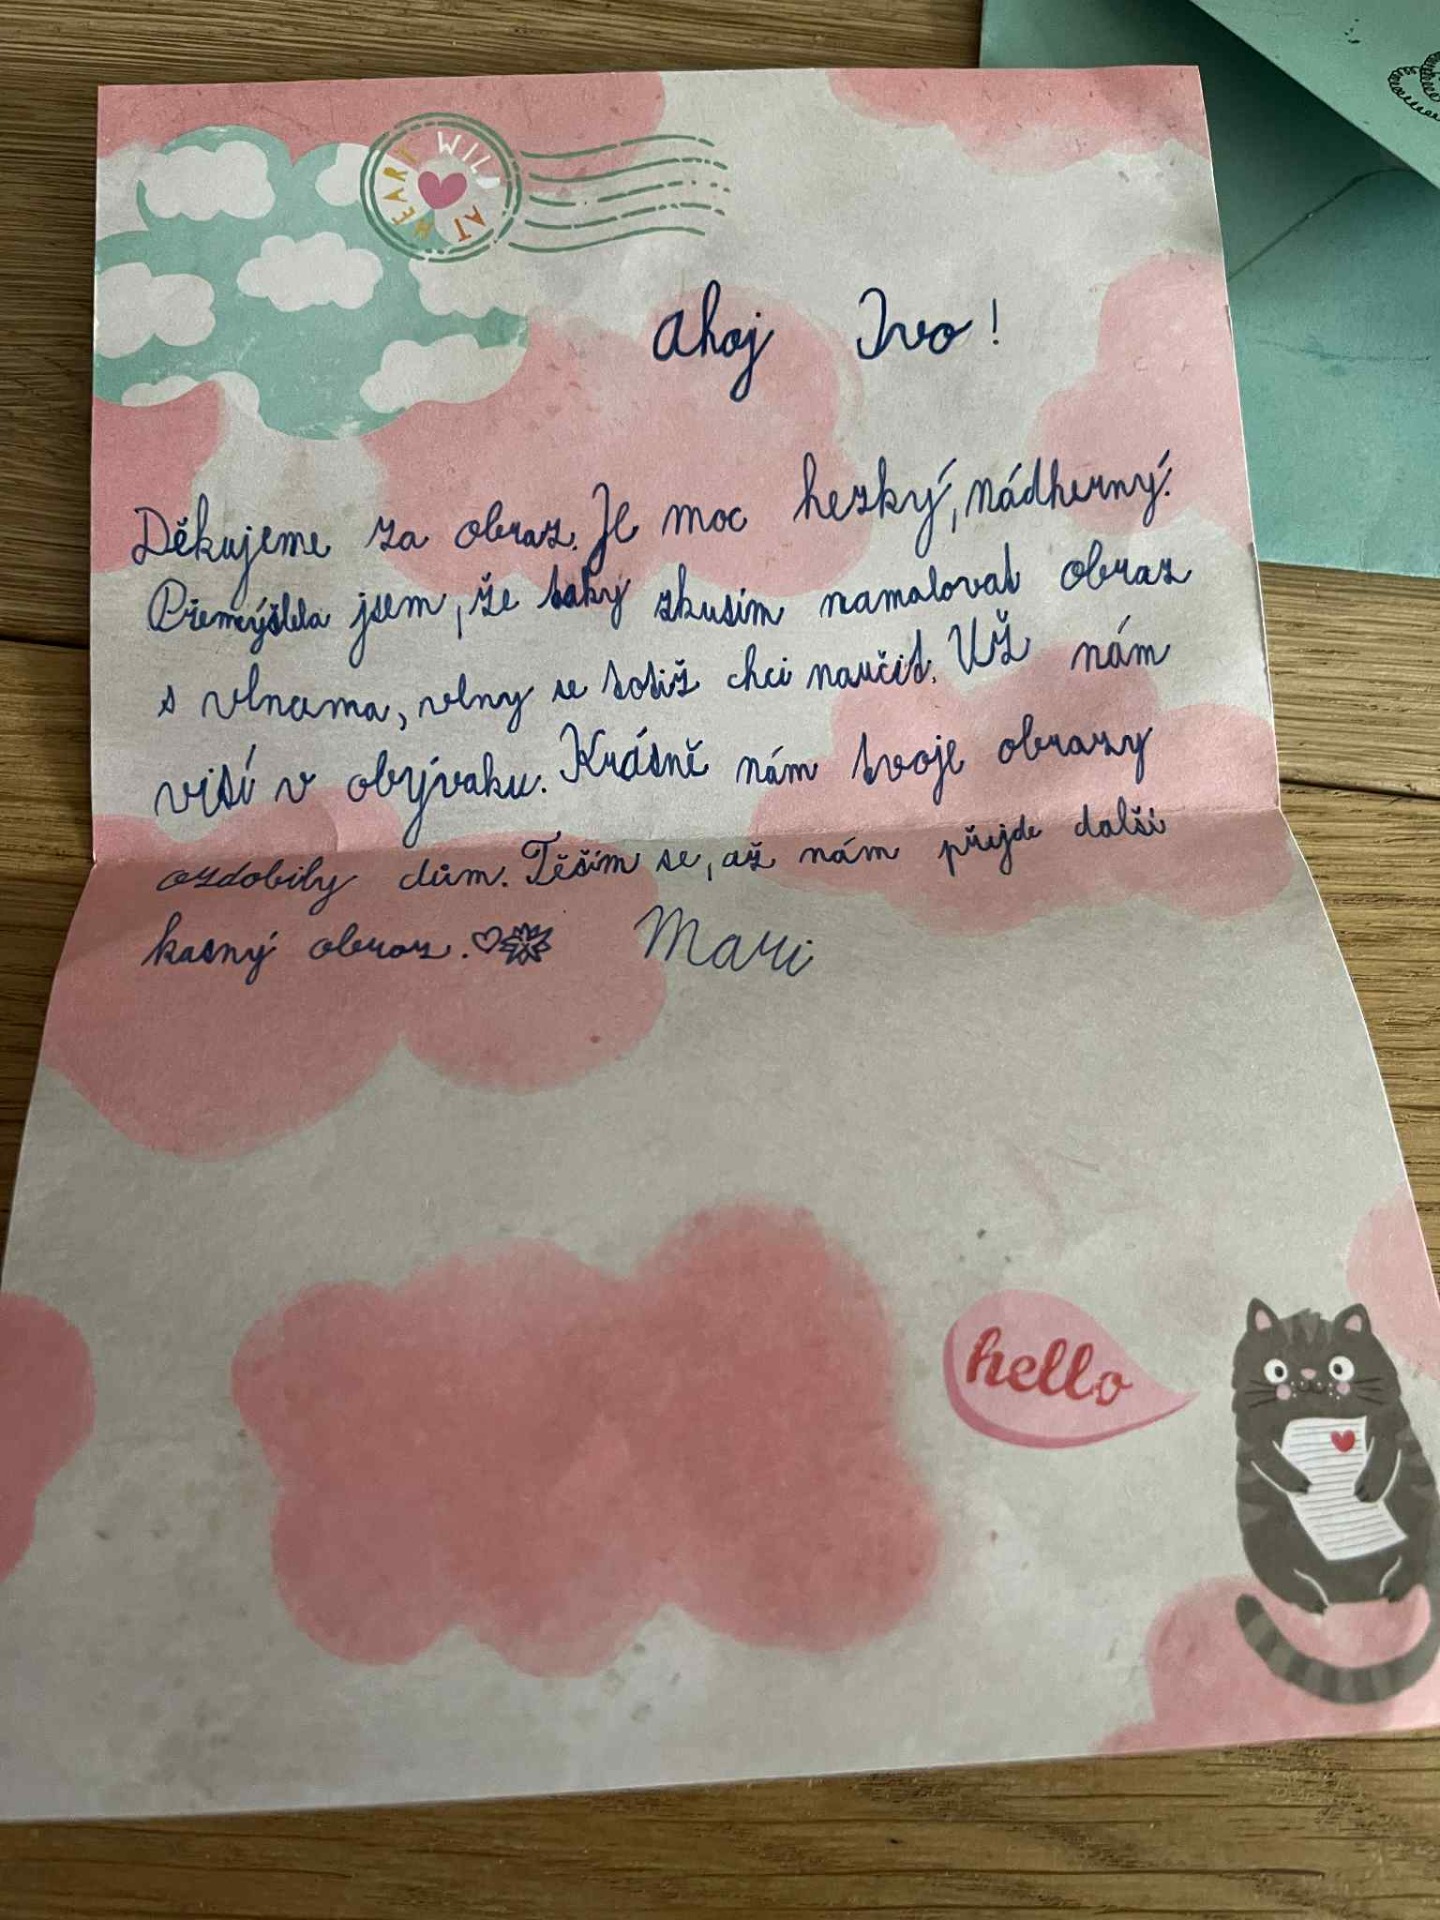 WILD AT HEART
Ahoj Ivo!
Děkujeme za obraz. Je moc hezký, nádherný.
Přemýšlela jsem, že taky zkusím namalovat obraz
s vlnama, vlny se totiž chci naučit. Už nám
visí v obýváku. Krásně nám tvoje obrazy
ozdobily dům. Těším se, až nám přejde další
kasný obraz.
Mari
hello